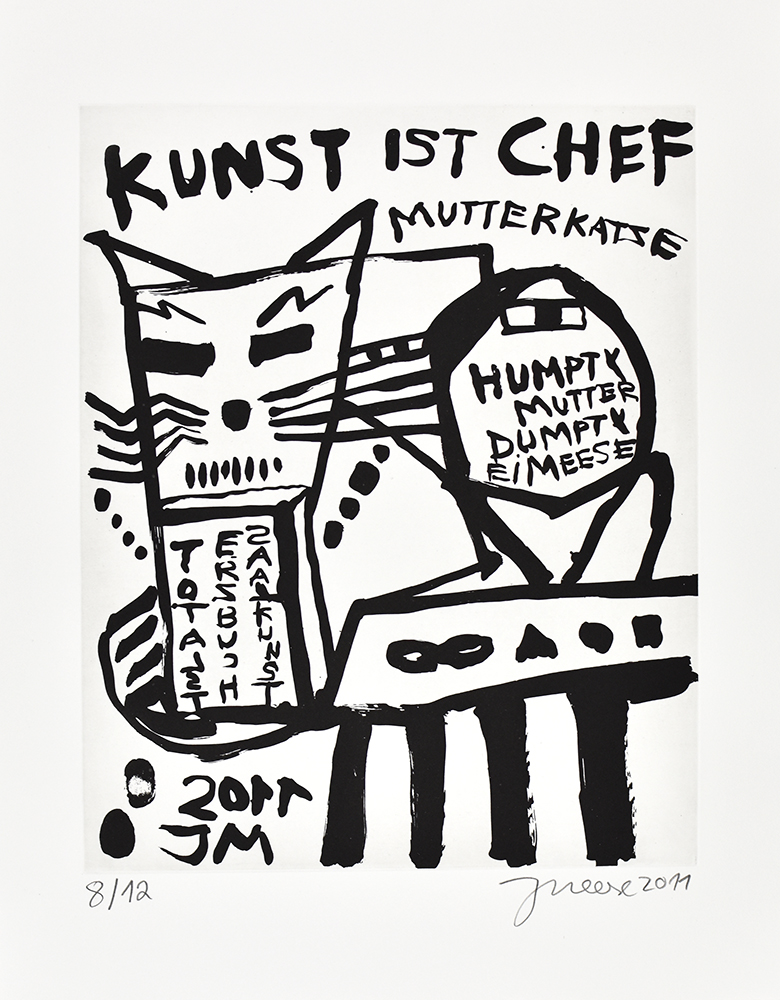 KUNST IST CHEF
MUTTERKATZE
HUMPTY
MUTTER
DUMPTY
EIMEESE
TOTALST
ERZBUCH
SAALKUNST
2011
JM
8/12
JMeese 2011